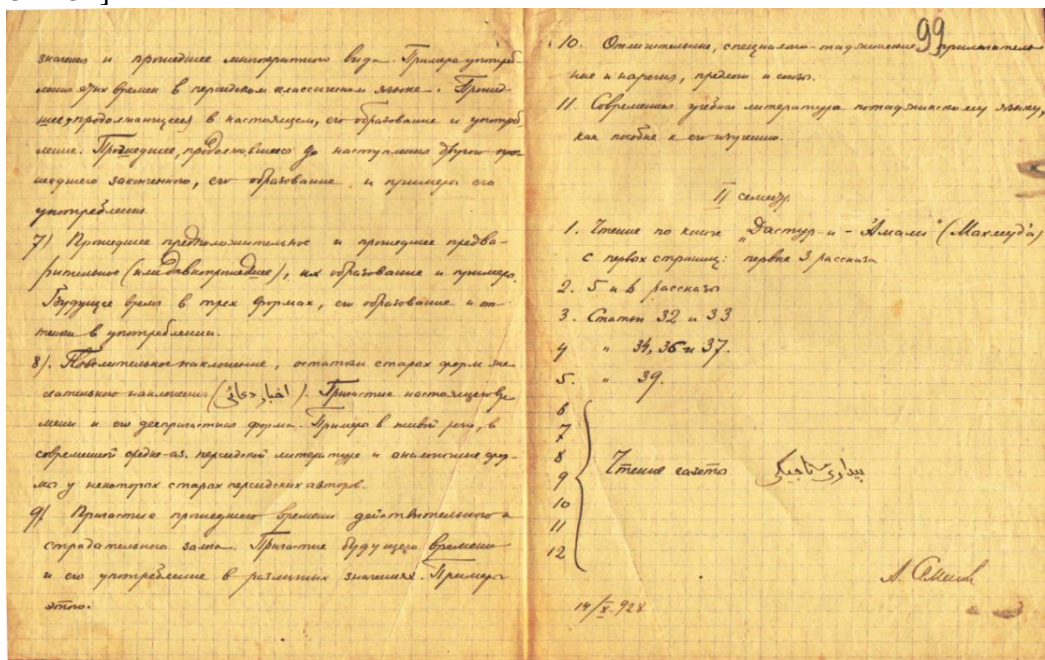 значении и прошедшее многократного вида. Примеры употреб-
ления этих времен в персидском классическом языке. Прошед-
шее, продолжающееся в настоящем, его образование и употреб-
ление. Прошедшее, продолжавшееся до наступления другого про-
шедшего законченного, его образование и примеры его
употребления.
7) Прошедшее предположительное и прошедшее предва-
рительное (или давнопрошедшее), их образование и примеры.
Будущее время в трех формах, его образование и от-
тенки в употреблении.
8). Повелительное наклонение, остатки старых форм же-
лательного наклонения (اخبار دعائی). Причастие настоящего вре-
мени и его деепричастная форма. Примеры в живой речи, в
современной средне-аз. персидской литературе и аналогичные фор-
мы у некоторых старых персидских авторов.
9) Причастие прошедшего времени действительного и
страдательного залога. Причастие будущего времени
и его употребление в различных значениях. Примеры
этого.
99
10. Отличительные, специально-таджикские прилагатель-
ные и наречия, предлоги и союзы.
11. Современная учебная литература по таджикскому языку,
как пособие к его изучению.
II семестр.
1. Чтение по книге „Дастур-и-Амали" (Махмуд'а)
с первых страниц: первые 3 рассказа
2. 5 и 6 рассказы
3. Статьи 32 и 33
4 " 34, 36 и 37.
5. " 39.
6
7
8
9 Чтение газеты بیداری تاجیک
10
11
12
А. Семенов
14/X.928